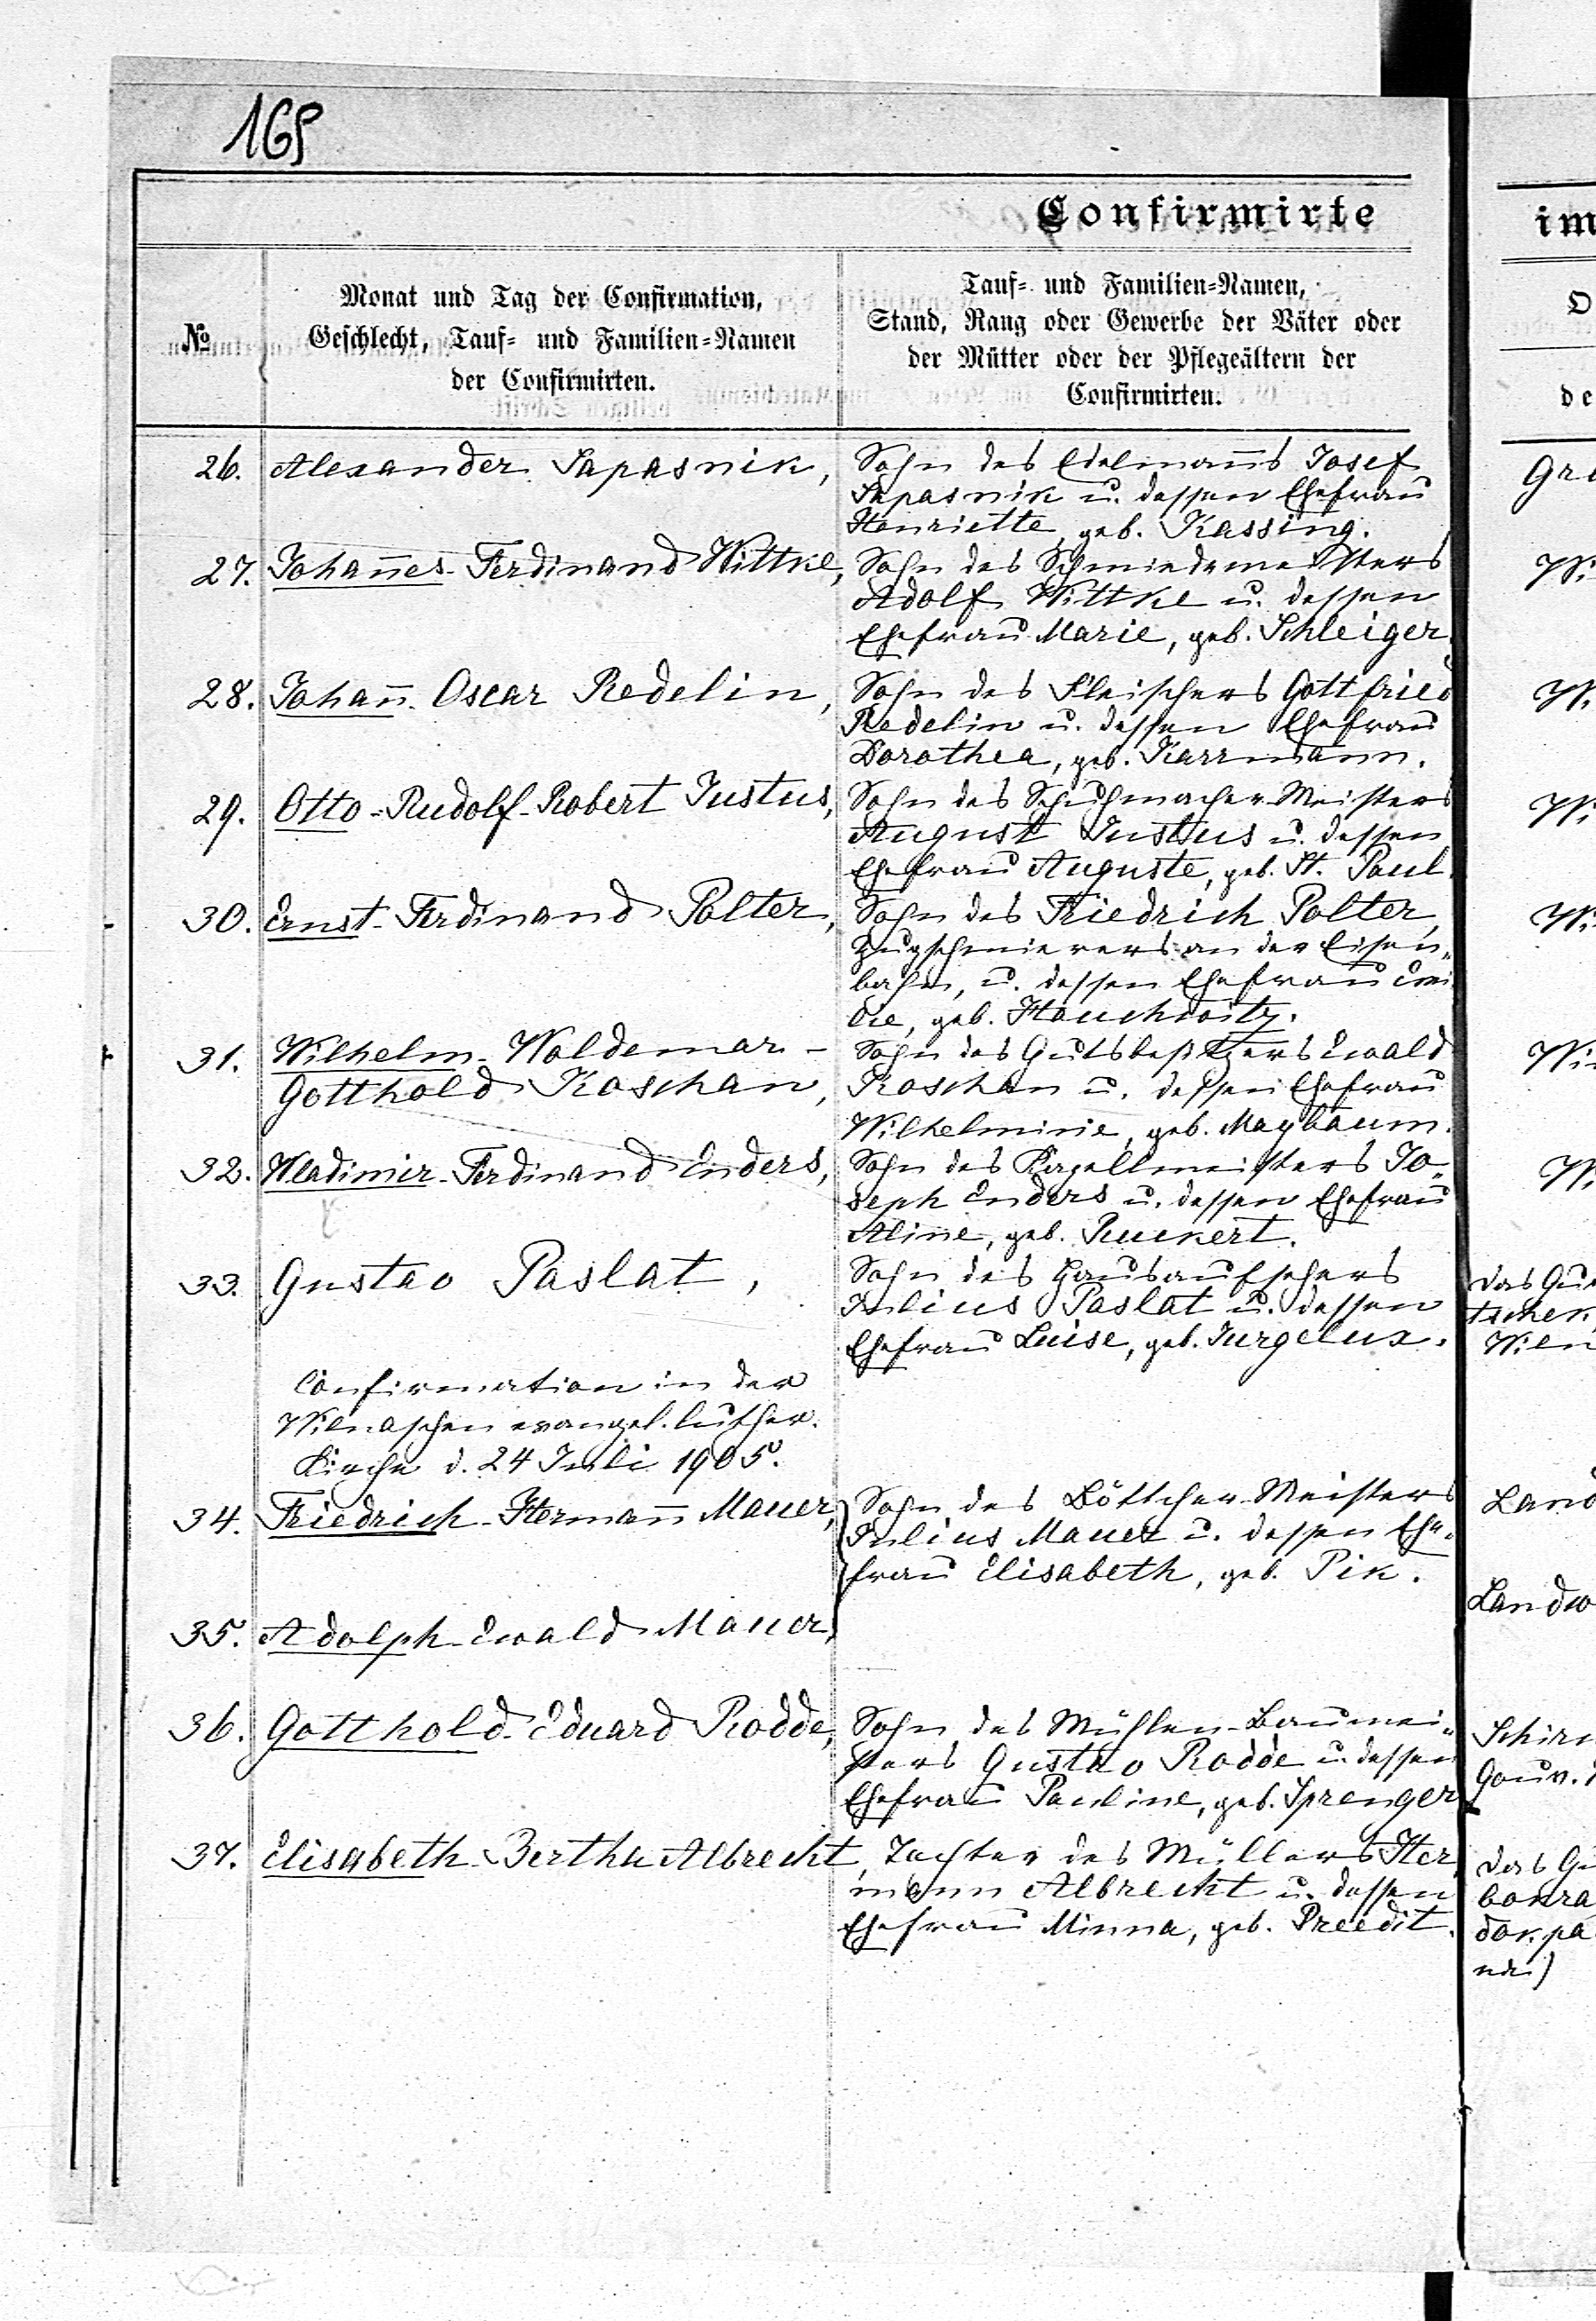 165
Confirmirte
im
№
Monat und Tag der Confirmation,
Geschlecht, Tauf- und Familien-Namen
der Confirmirten.
Tauf- und Familien-Namen,
Stand, Rang oder Gewerbe der Väter oder
der Mütter oder der Pflegeältern der
Confirmirten.
O
de
26. Alexander Sapasnik,
Sohn des Edelmanns Josef
Sapasnik u. dessen Ehefrau
Henriette, geb. Kassing.
27. Johannes-Ferdinand Wittke,
Sohn des Schmiedemeisters
Adolf Wittke u. dessen
Ehefrau Marie, geb. Schleiger.
28. Johann-Oscar Redelin,
Sohn des Fleischers Gottfried
Redelin u. dessen Ehefrau
Dorothea, geb. Karrmann.
29. Otto-Rudolf-Robert Justus,
Sohn des Schuhmacher-Meisters
August Justus u. dessen
Ehefrau Auguste, geb. St. Paul.
30. Ernst-Ferdinand Polter,
Sohn des Friedrich Polter,
Zugschmierers an der Eisen„
bahn, u. dessen Ehefrau Emi
lie, geb. Hauchwitz.
31. Wilhelm-Woldemar-
Gotthold Koschan,
Sohn des Gutsbesitzers Ewald
Koschan u. dessen Ehefrau
Wilhelmine, geb. Maybaum.
32. Wladimir-Ferdinand Enders,
Sohn des Kapellmeisters Jo„
seph Enders u. dessen Ehefrau
Aline, geb. Ruckert.
33. Gustav Paslat,
Sohn des Hausaufsehers
Julius Paslat u. dessen
Ehefrau Luise, geb. Jurgelux.
Confirmation in der
Wilnaschen evangel. luther.
Kirche d. 24 Juli 1905.
34. Friedrich-Hermann Mauer,
Sohn des Böttcher-Meisters
Julius Mauer u. dessen Ehe„
frau Elisabeth, geb. Pik.
35. Adolph-Ewald Mauer,
36. Gotthold-Eduard Rodde,
Sohn des Mühlen-Baumei„
sters Gustav Rodde u. dessen
Ehefrau Pauline, geb. Sprenger.
37. Elisabeth-Bertha Albrecht,
Tochter des Müllers Her„
mann Albrecht u. dessen
Ehefrau Minna, geb. Preedit.
Das Gu
Wiln
Land
Landw
Schir
Gouv.
Das Gu